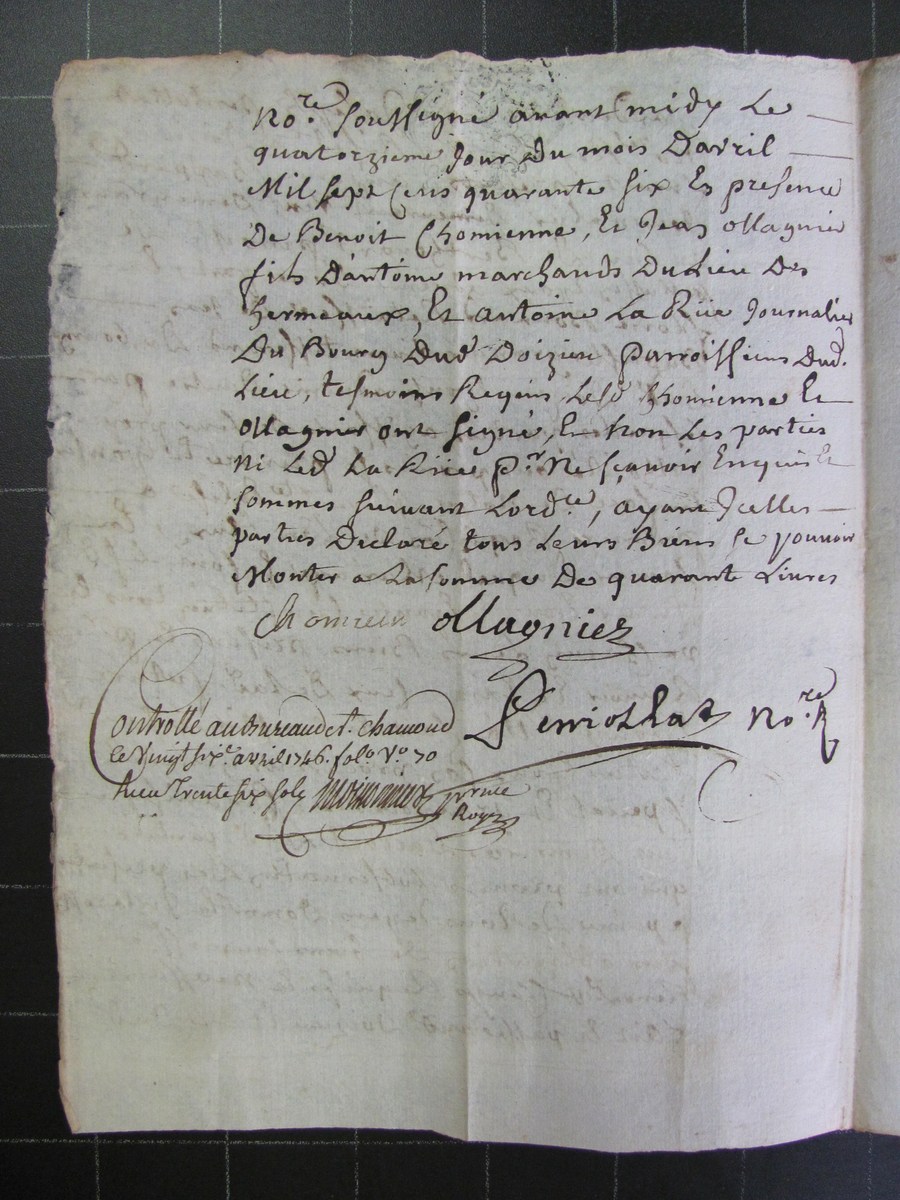 No.re soussigné avant midy Le
quatorzieme Jour Du mois Davril
Mil sept Cens quarante six En presence
De Benoit Chomienne, Et Jean ollagnier
fils D'antoine marchands Du Lieu Des
hermeaux, Et antoine La Riie Journalier
Du Bourg Dud. Doizieu parroissiens Dud.
Lieu, tesmoins Requis Lesd. Chomienne Et
ollagnier ont signé, Et non Les parties
ni Led. La Riie pr. Ne sçavoir Enquis Et
sommes suivant Lord.ce, ayant Icelles
parties Declaré tous Leurs Biens se pouvoir
Monter a La somme De quarante Livres
Chomienne ollagnier
Controllé au Bureau de st. chamond Perriolhat No.re R
le vingt six.e avril 1746. fol.o V.o 70
Receu Trente six sols
Royal